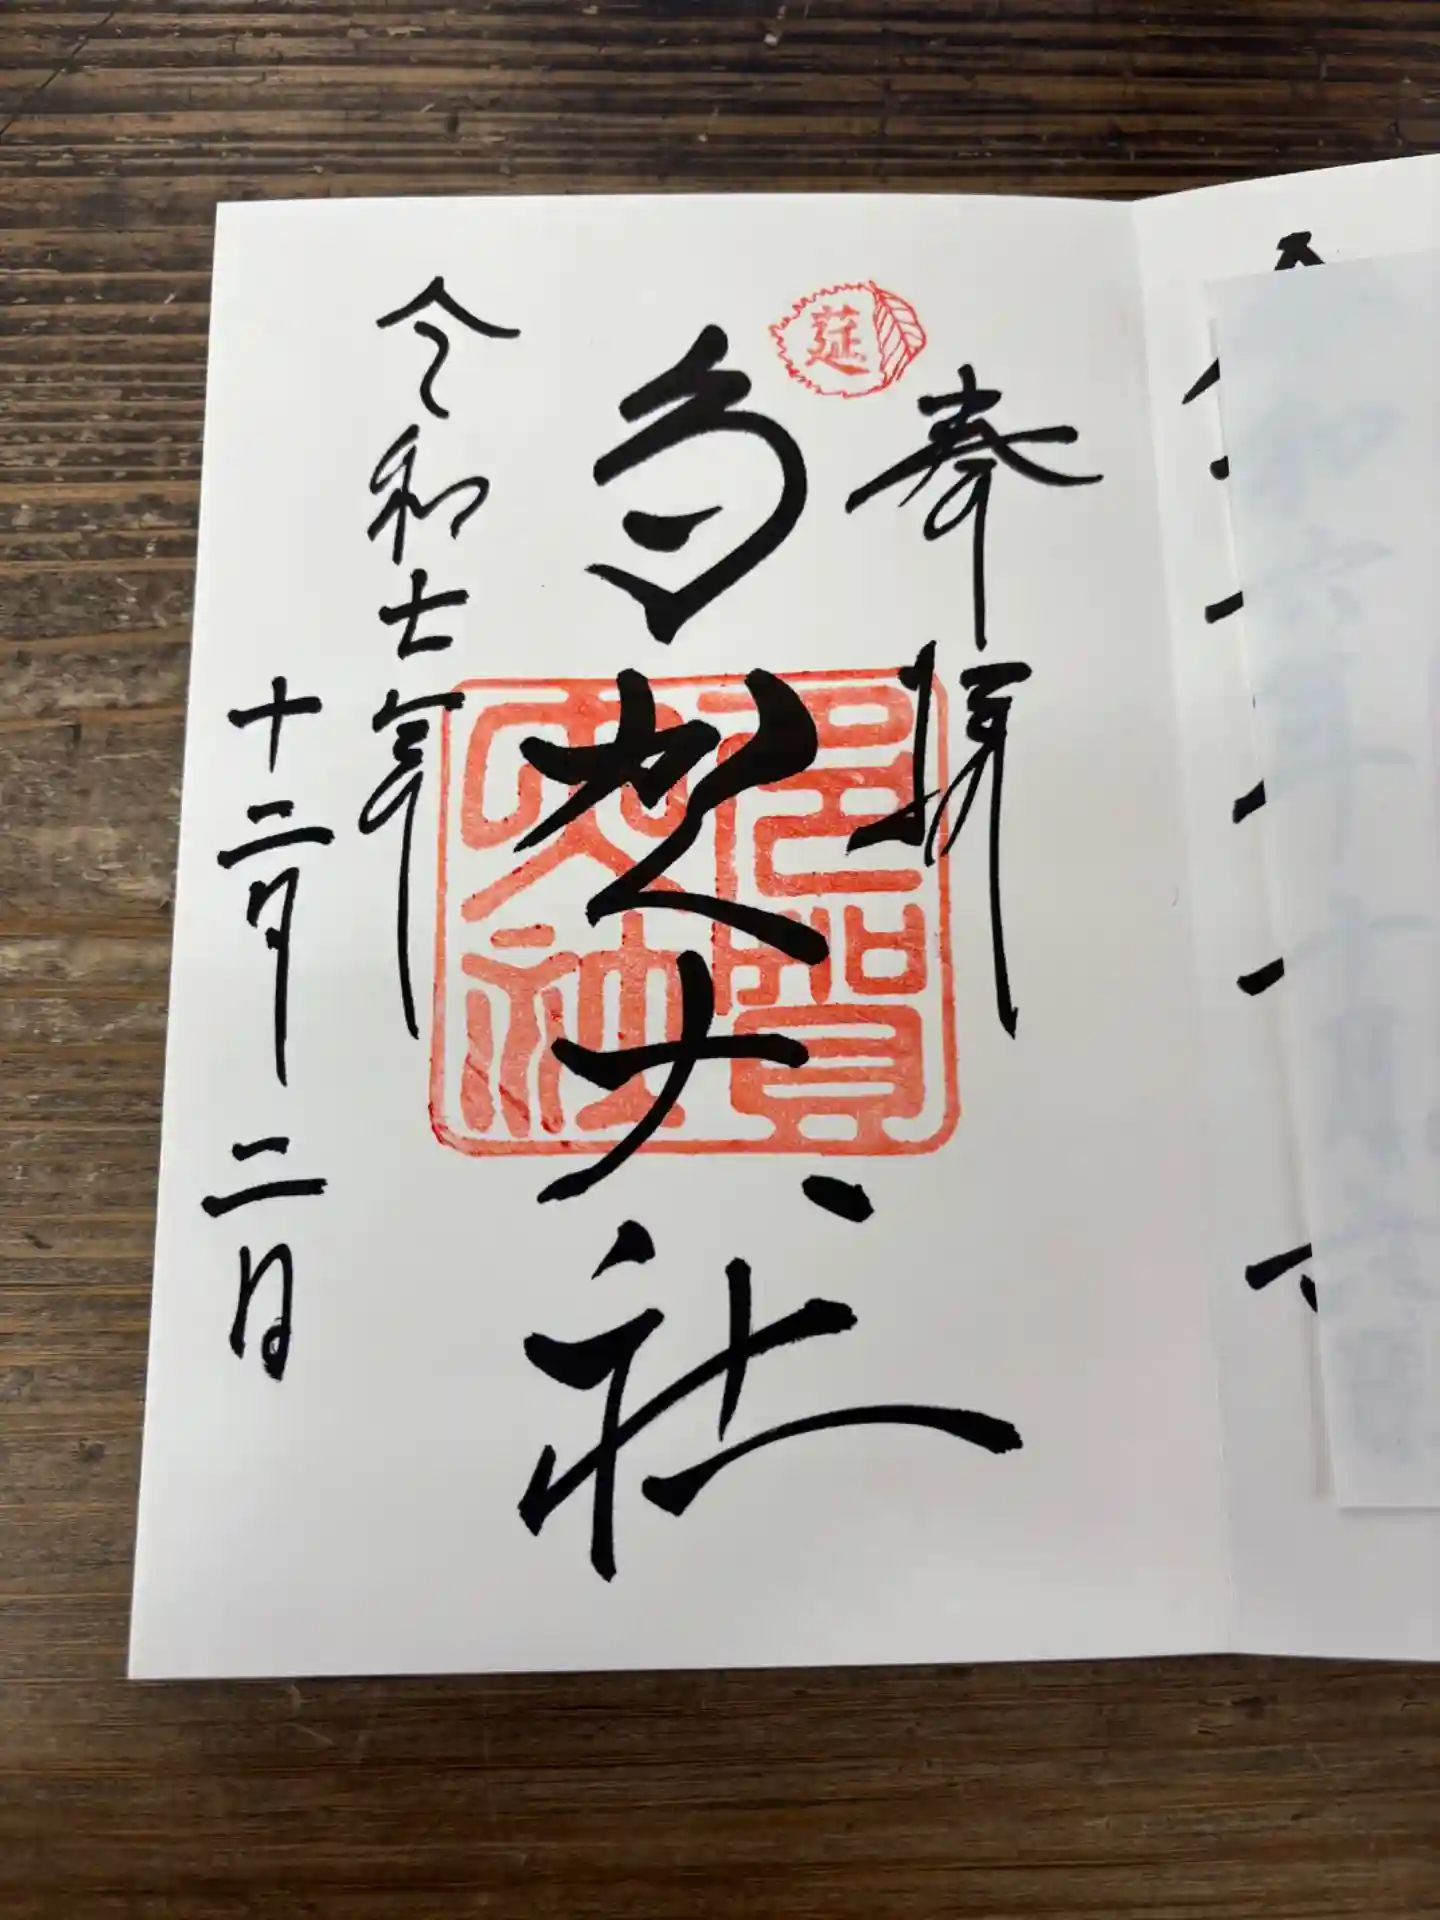 奉拝
莚
多賀大社
多賀大社
令和七年
十二月二日